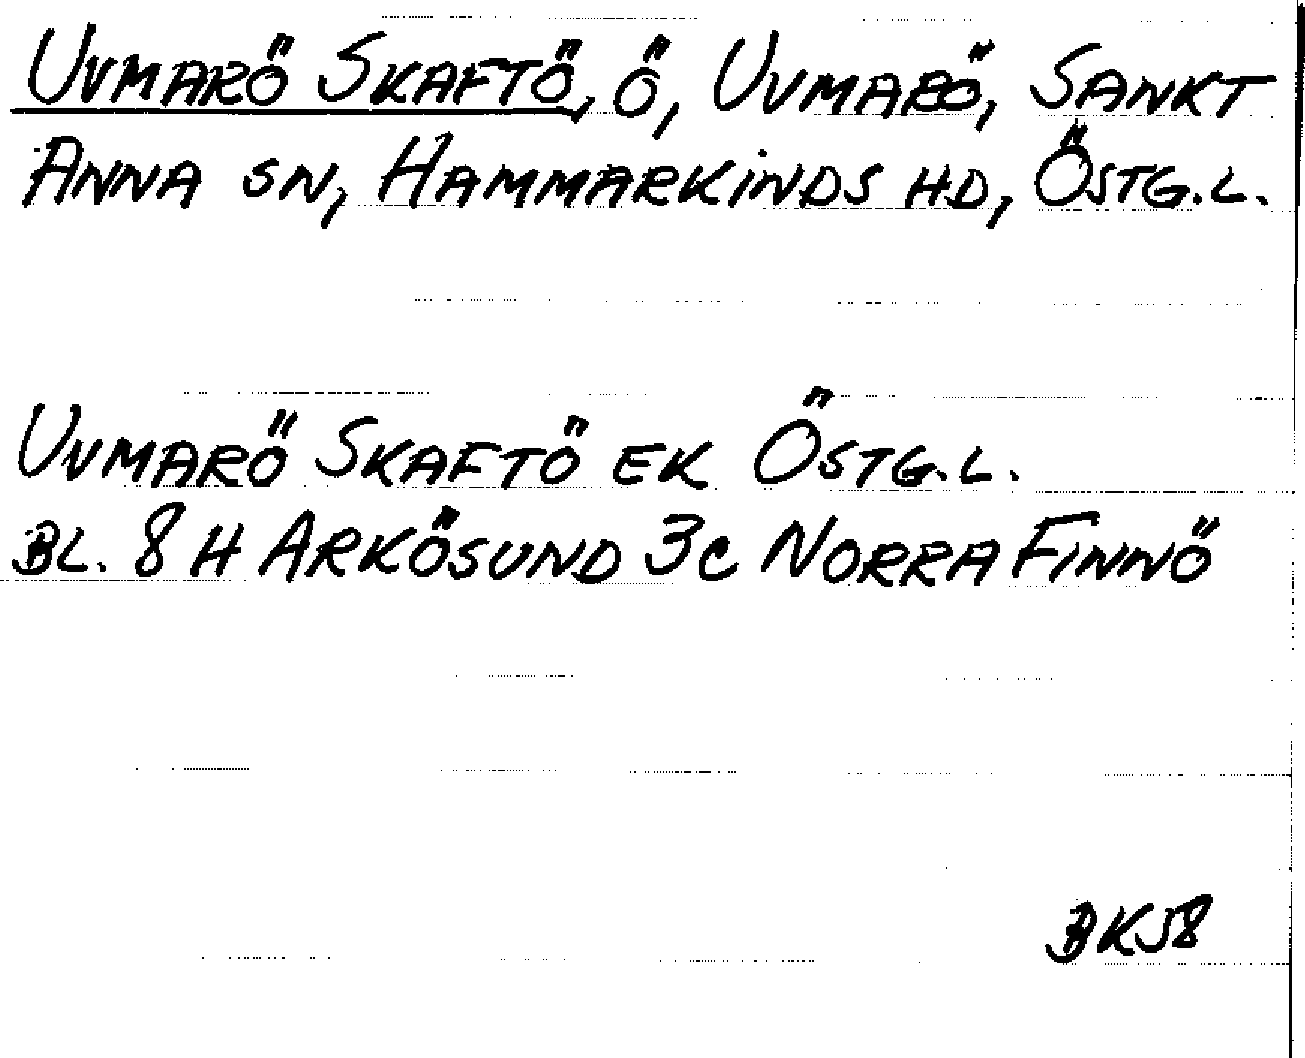 UVMARÖ SKAFTÖ, Ö, UVMARÖ, SANKT
ANNA SN, HAMMARKINDS HD, ÖSTG.L.
UVMARÖ SKAFTÖ EK ÖSTG.L.
BL. 8 H ARKÖSUND 3C NORRA FINNÖ
BK58